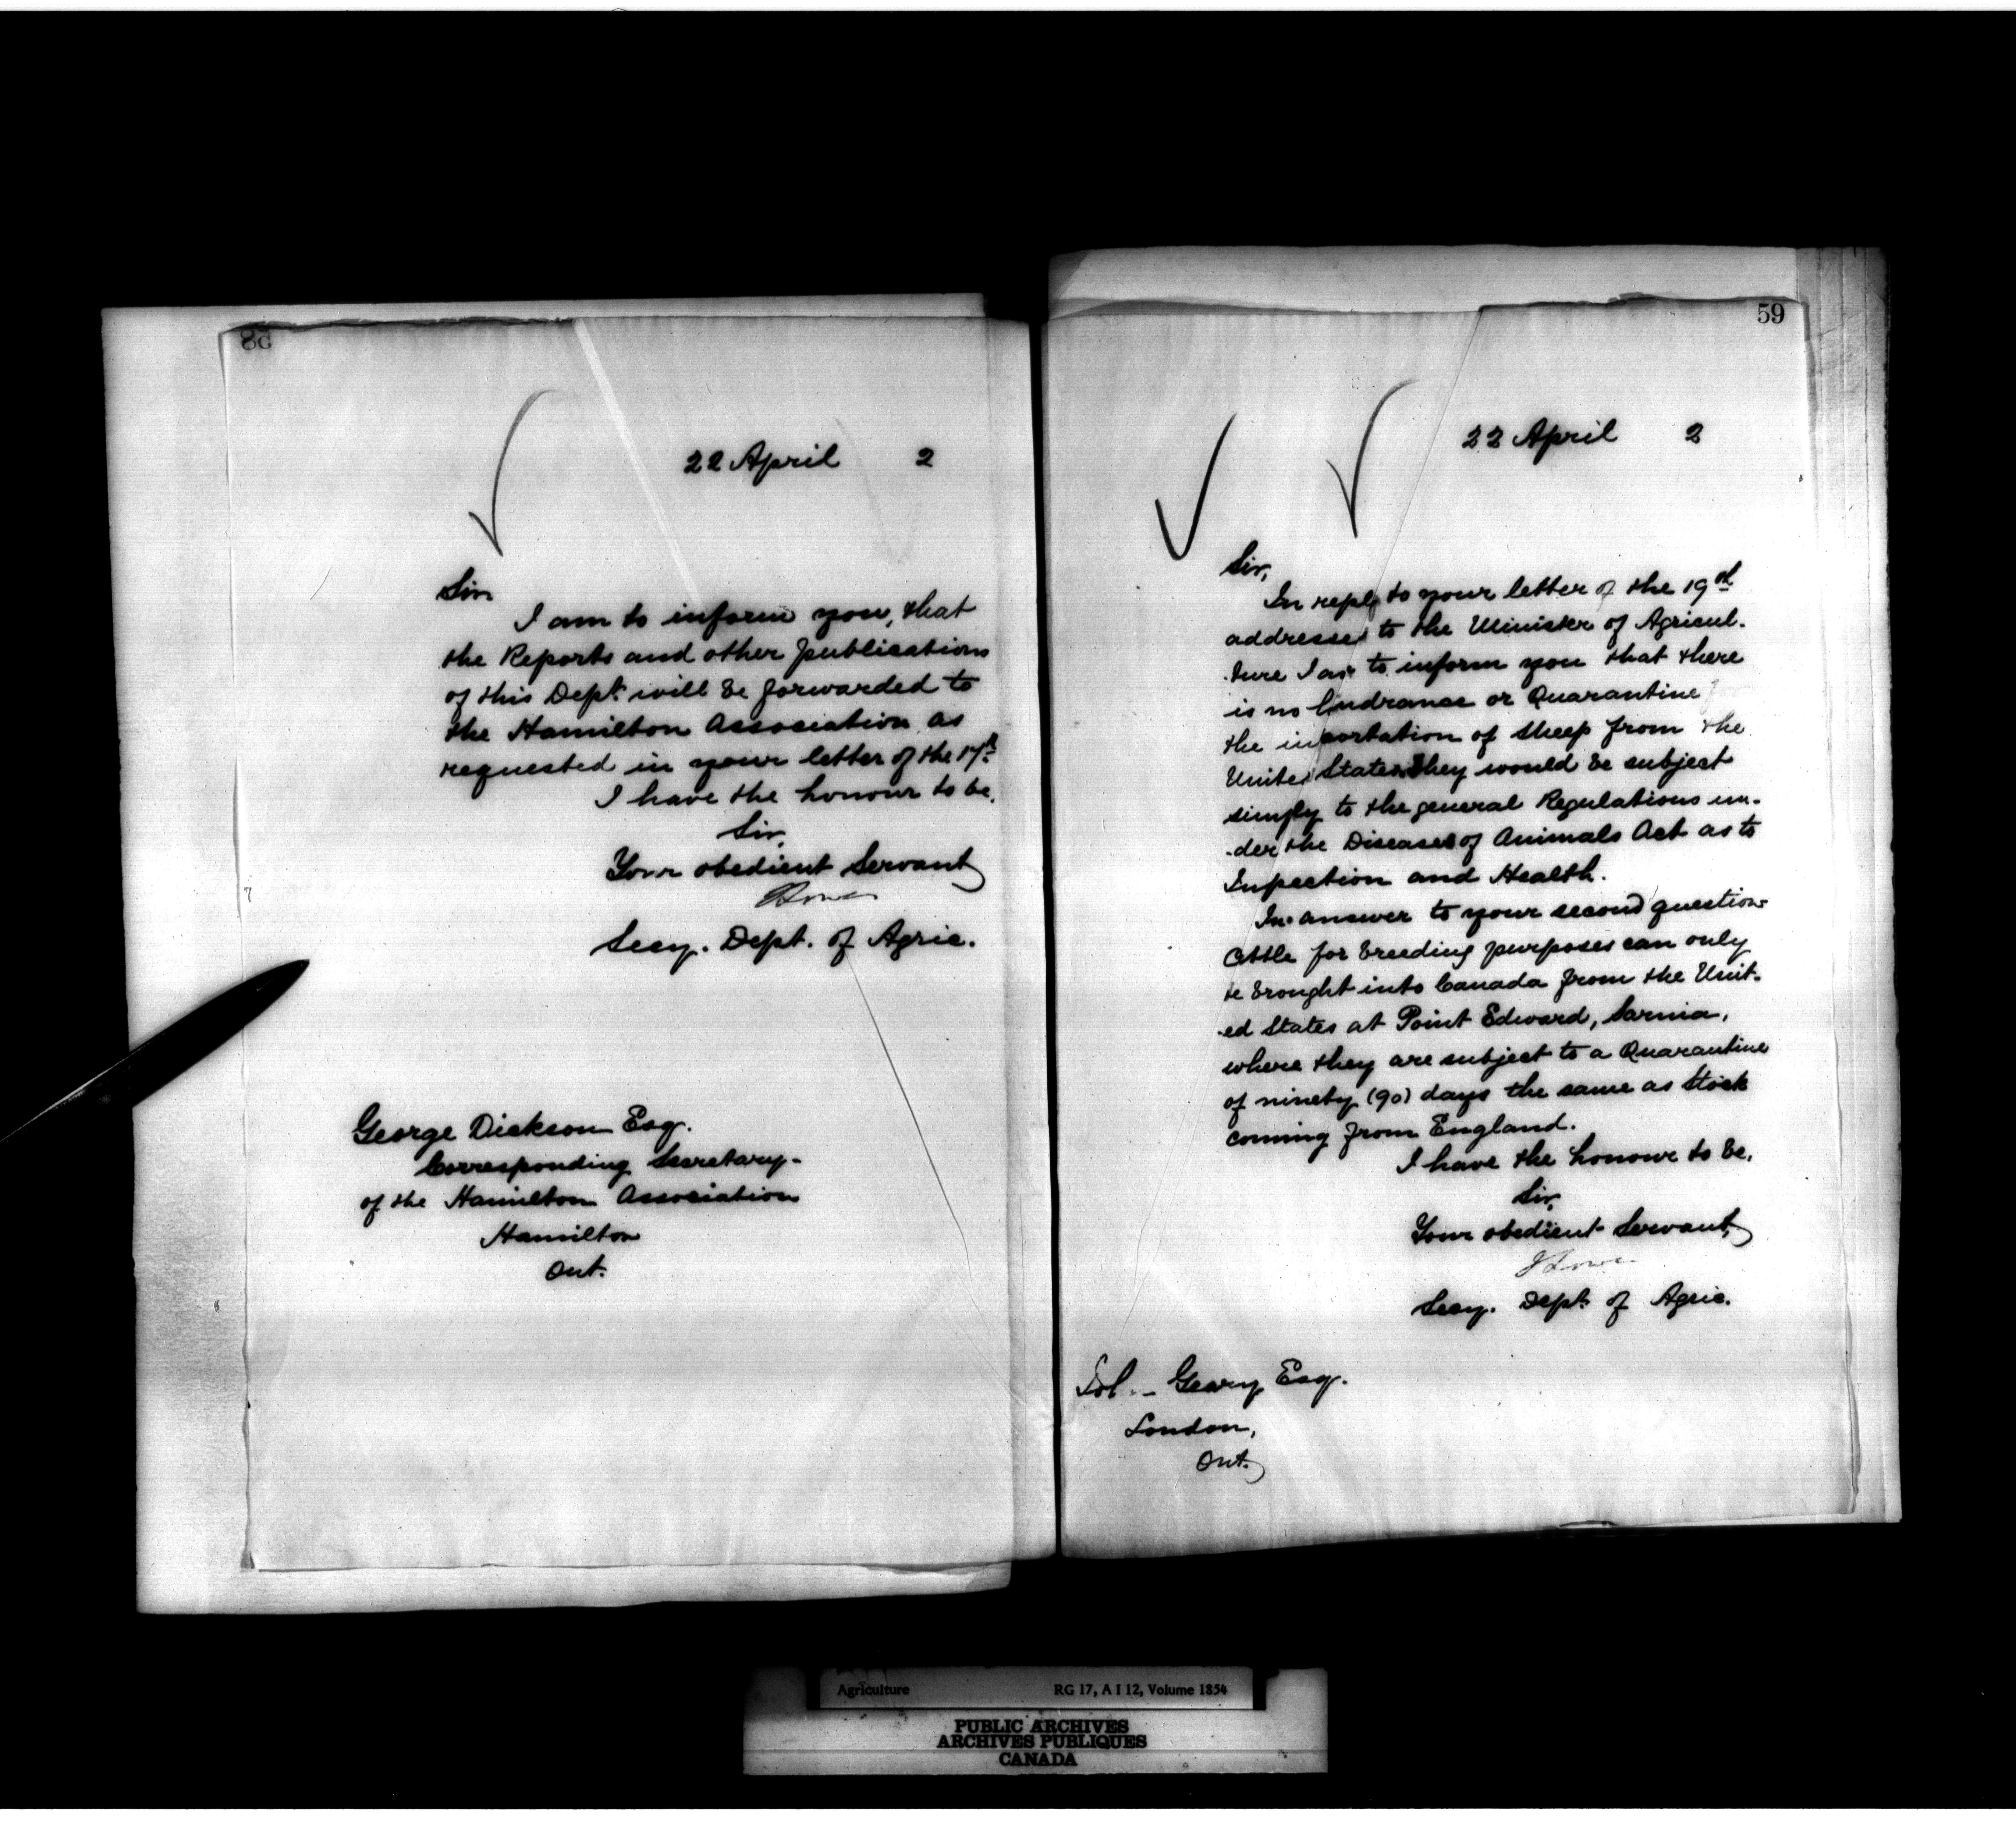 58
22 April 2
Sir
I am to inform you, that
the Reports and other publications
of this Dept. will be forwarded to
the Hamilton Association as
requested in your letter of the 17th
I have the honour to be,
Sir,
Your obedient Servant
Secy. Dept. of Agric.
George Dickson Esq.
Corresponding Secretary-
of the Hamilton Association
Hamilton
Ont.
59
22 April 2
Sir,
In reply to your letter of the 19th
addressed to the Minister of Agricul-
-ture I am to inform you that there
is no hindrance or Quarantine for
the importation of sheep from the
United States. They would be subject
simply to the general Regulations un-
-der the Diseases of Animals Act as to
Inspection and Health.
In answer to your second question
Cattle for breeding purposes can only
be brought into Canada from the Unit-
-ed States at Point Edward, Sarnia,
where they are subject to a Quarantine
of ninety (90) days the same as Stock
coming from England.
I have the honour to be,
Sir,
Your obedient Servant,
J Lowe
Secy. Dept. of Agric.
Geary Esq.
London,
Ont.
Agriculture RG 17, A I 12, Volume 1854
PUBLIC ARCHIVES
ARCHIVES PUBLIQUES
CANADA